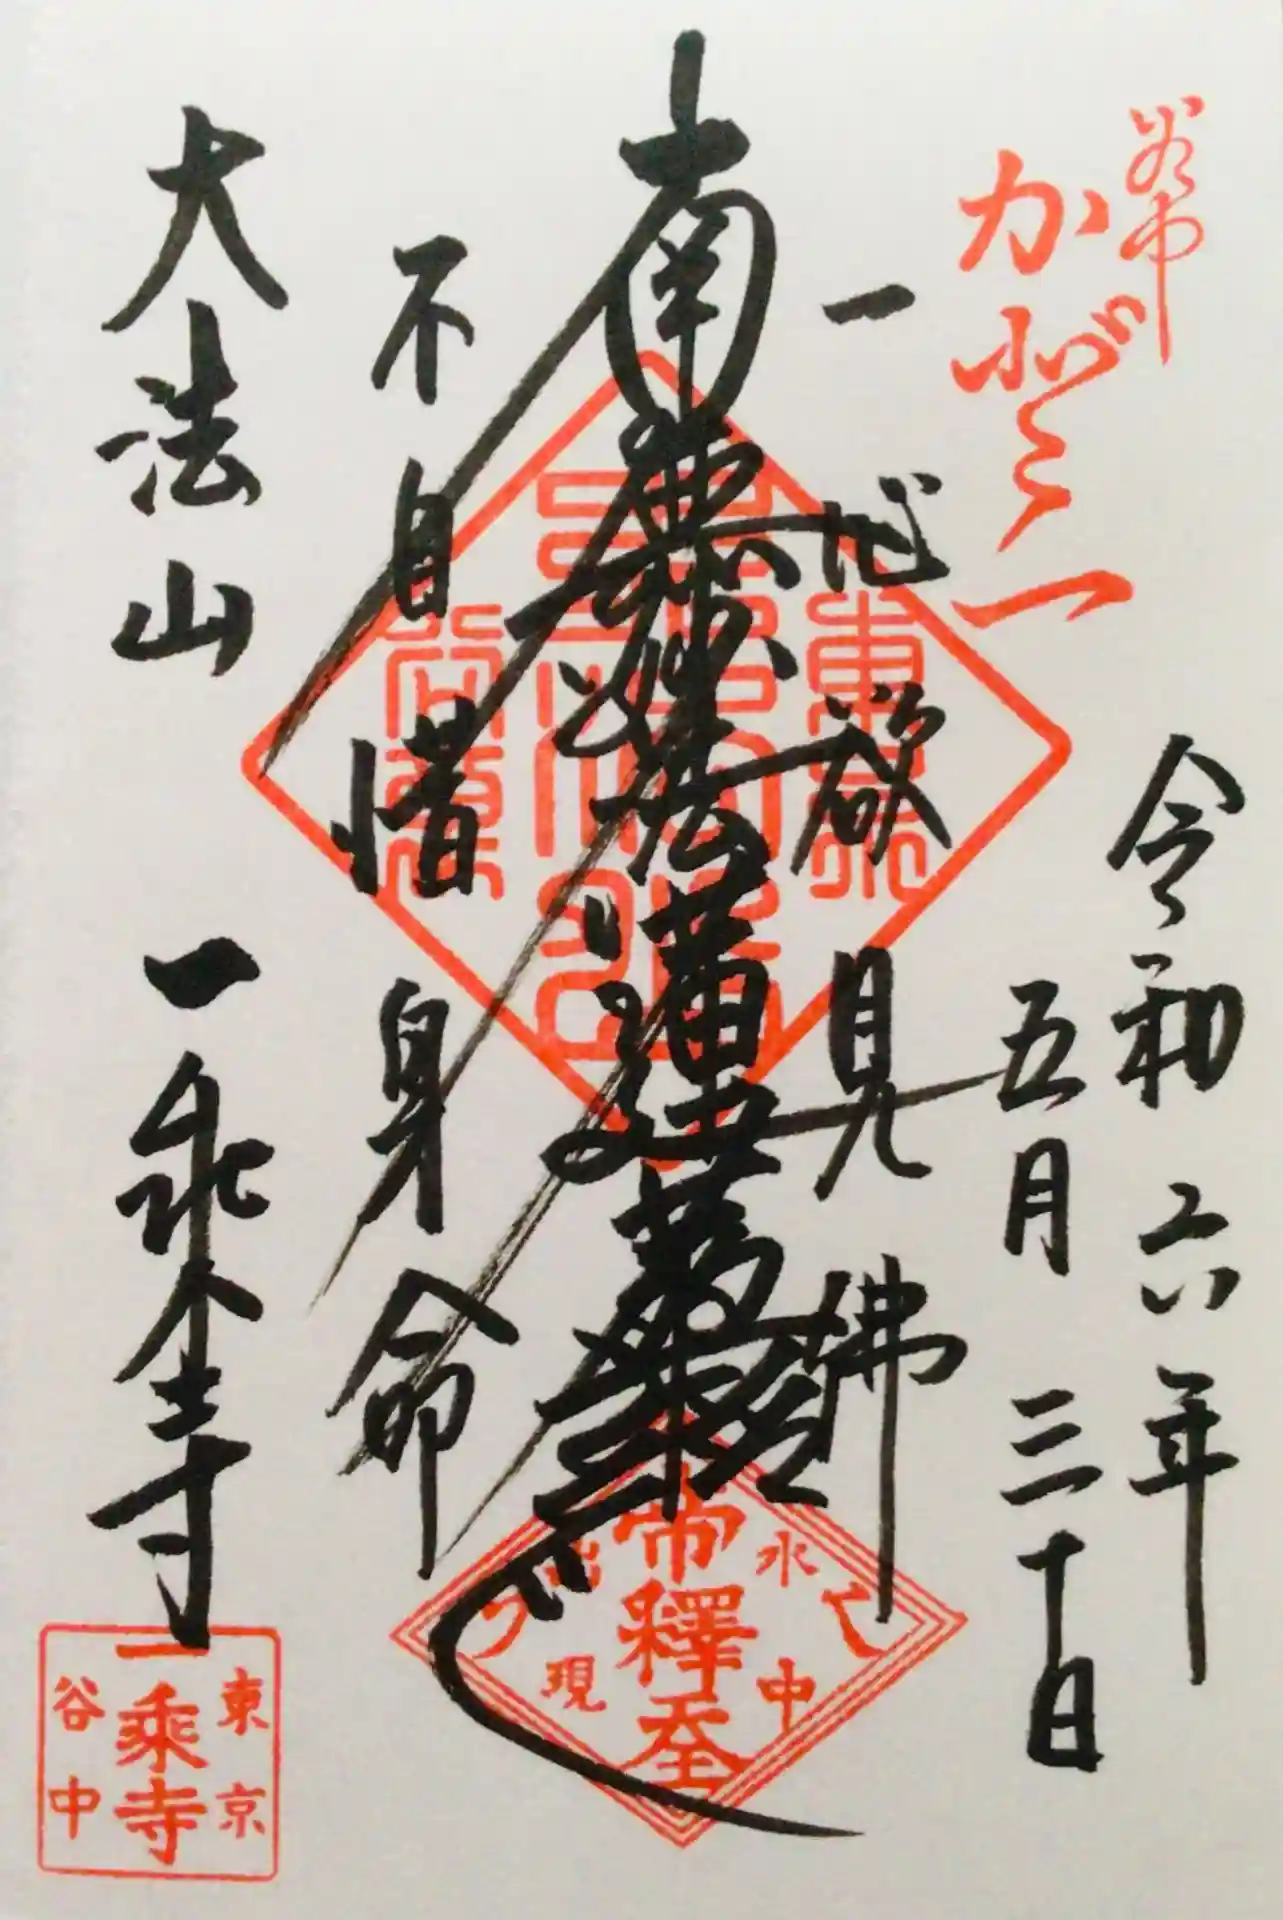 谷中
令和六年
五月三十日
一心欲見佛
南無妙法蓮華経
不自惜身命
大法山 一乘寺
東京
谷中
帝釋
水中
出現
東京
一乘寺
谷中